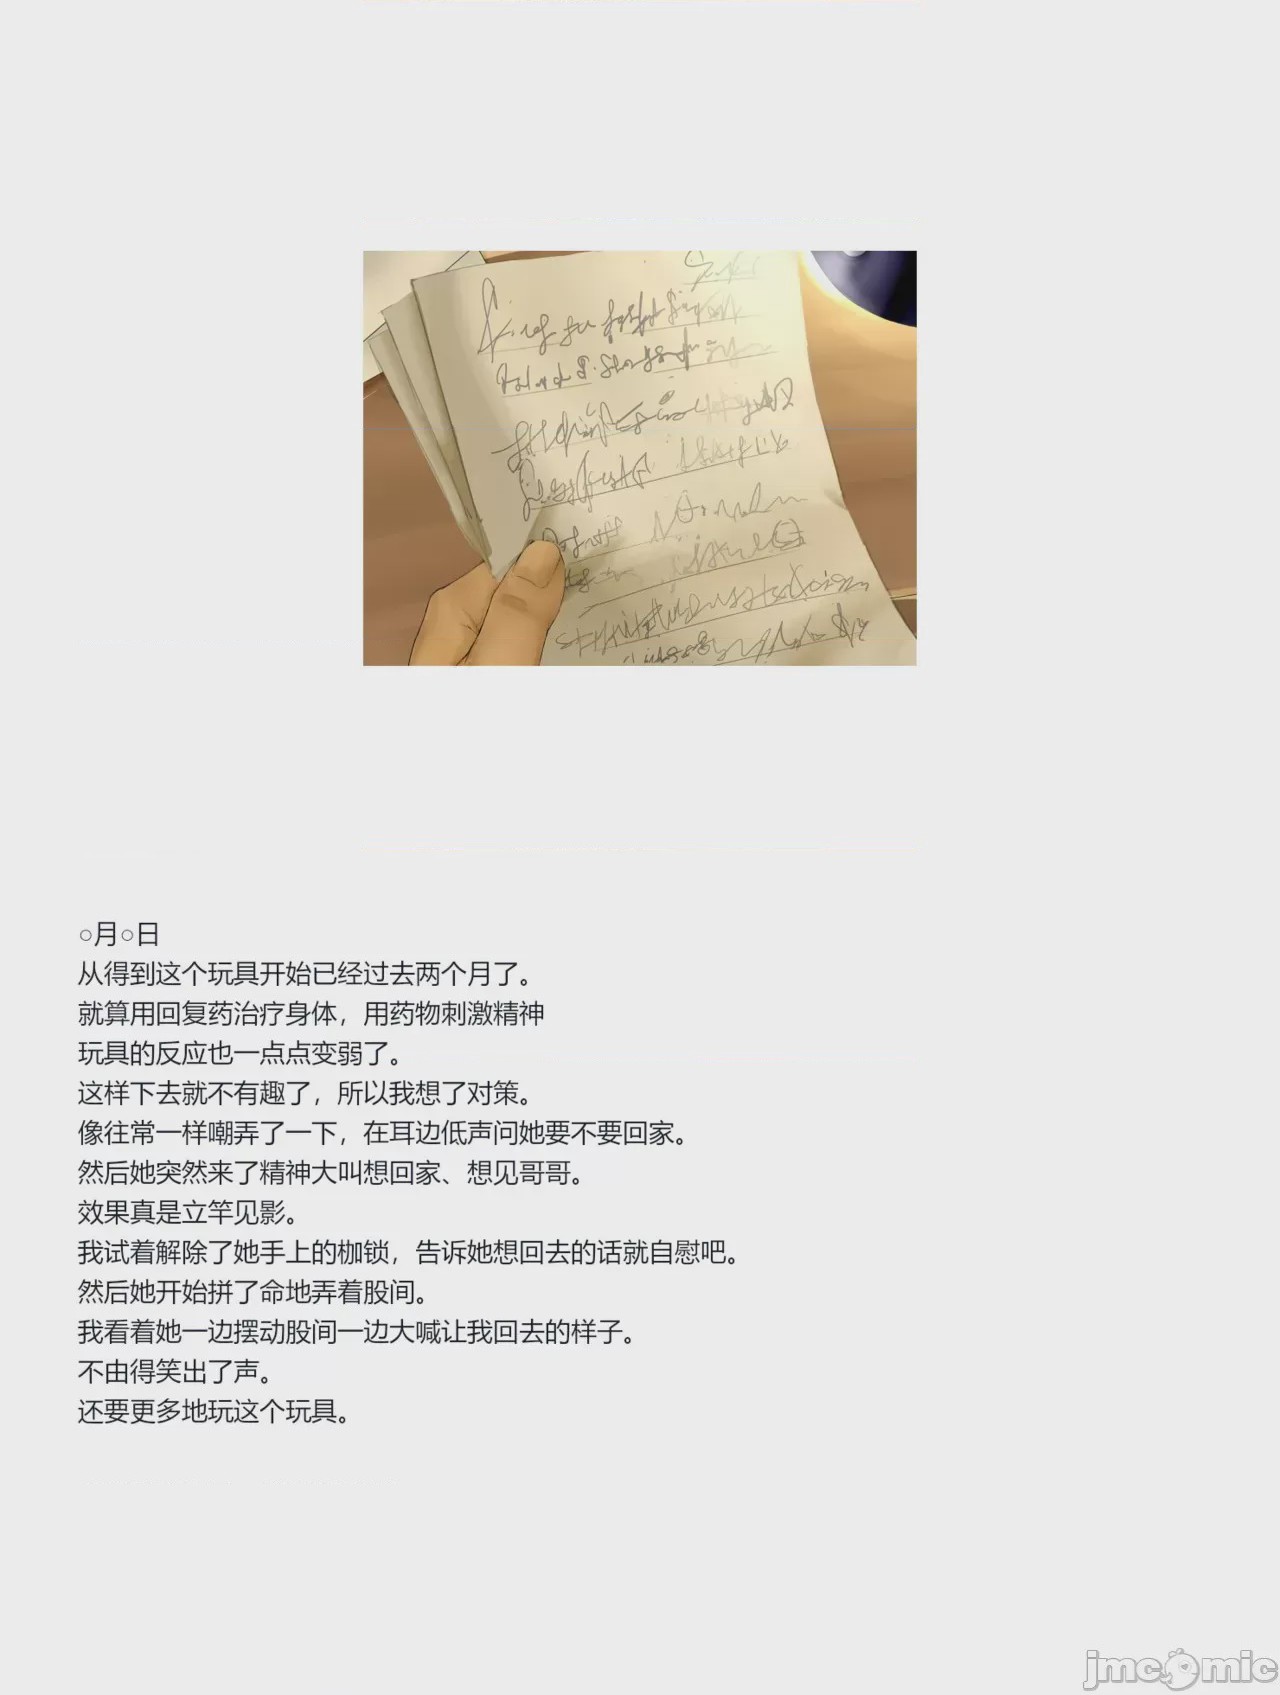 ○月○日
从得到这个玩具开始已经过去两个月了。
就算用回复药治疗身体，用药物刺激精神
玩具的反应也一点点变弱了。
这样下去就不有趣了，所以我想了对策。
像往常一样嘲弄了一下，在耳边低声问她要不要回家。
然后她突然来了精神大叫想回家、想见哥哥。
效果真是立竿见影。
我试着解除了她手上的枷锁，告诉她想回去的话就自慰吧。
然后她开始拼了命地弄着股间。
我看着她一边摆动股间一边大喊让我回去的样子。
不由得笑出了声。
还要更多地玩这个玩具。
jmcomic